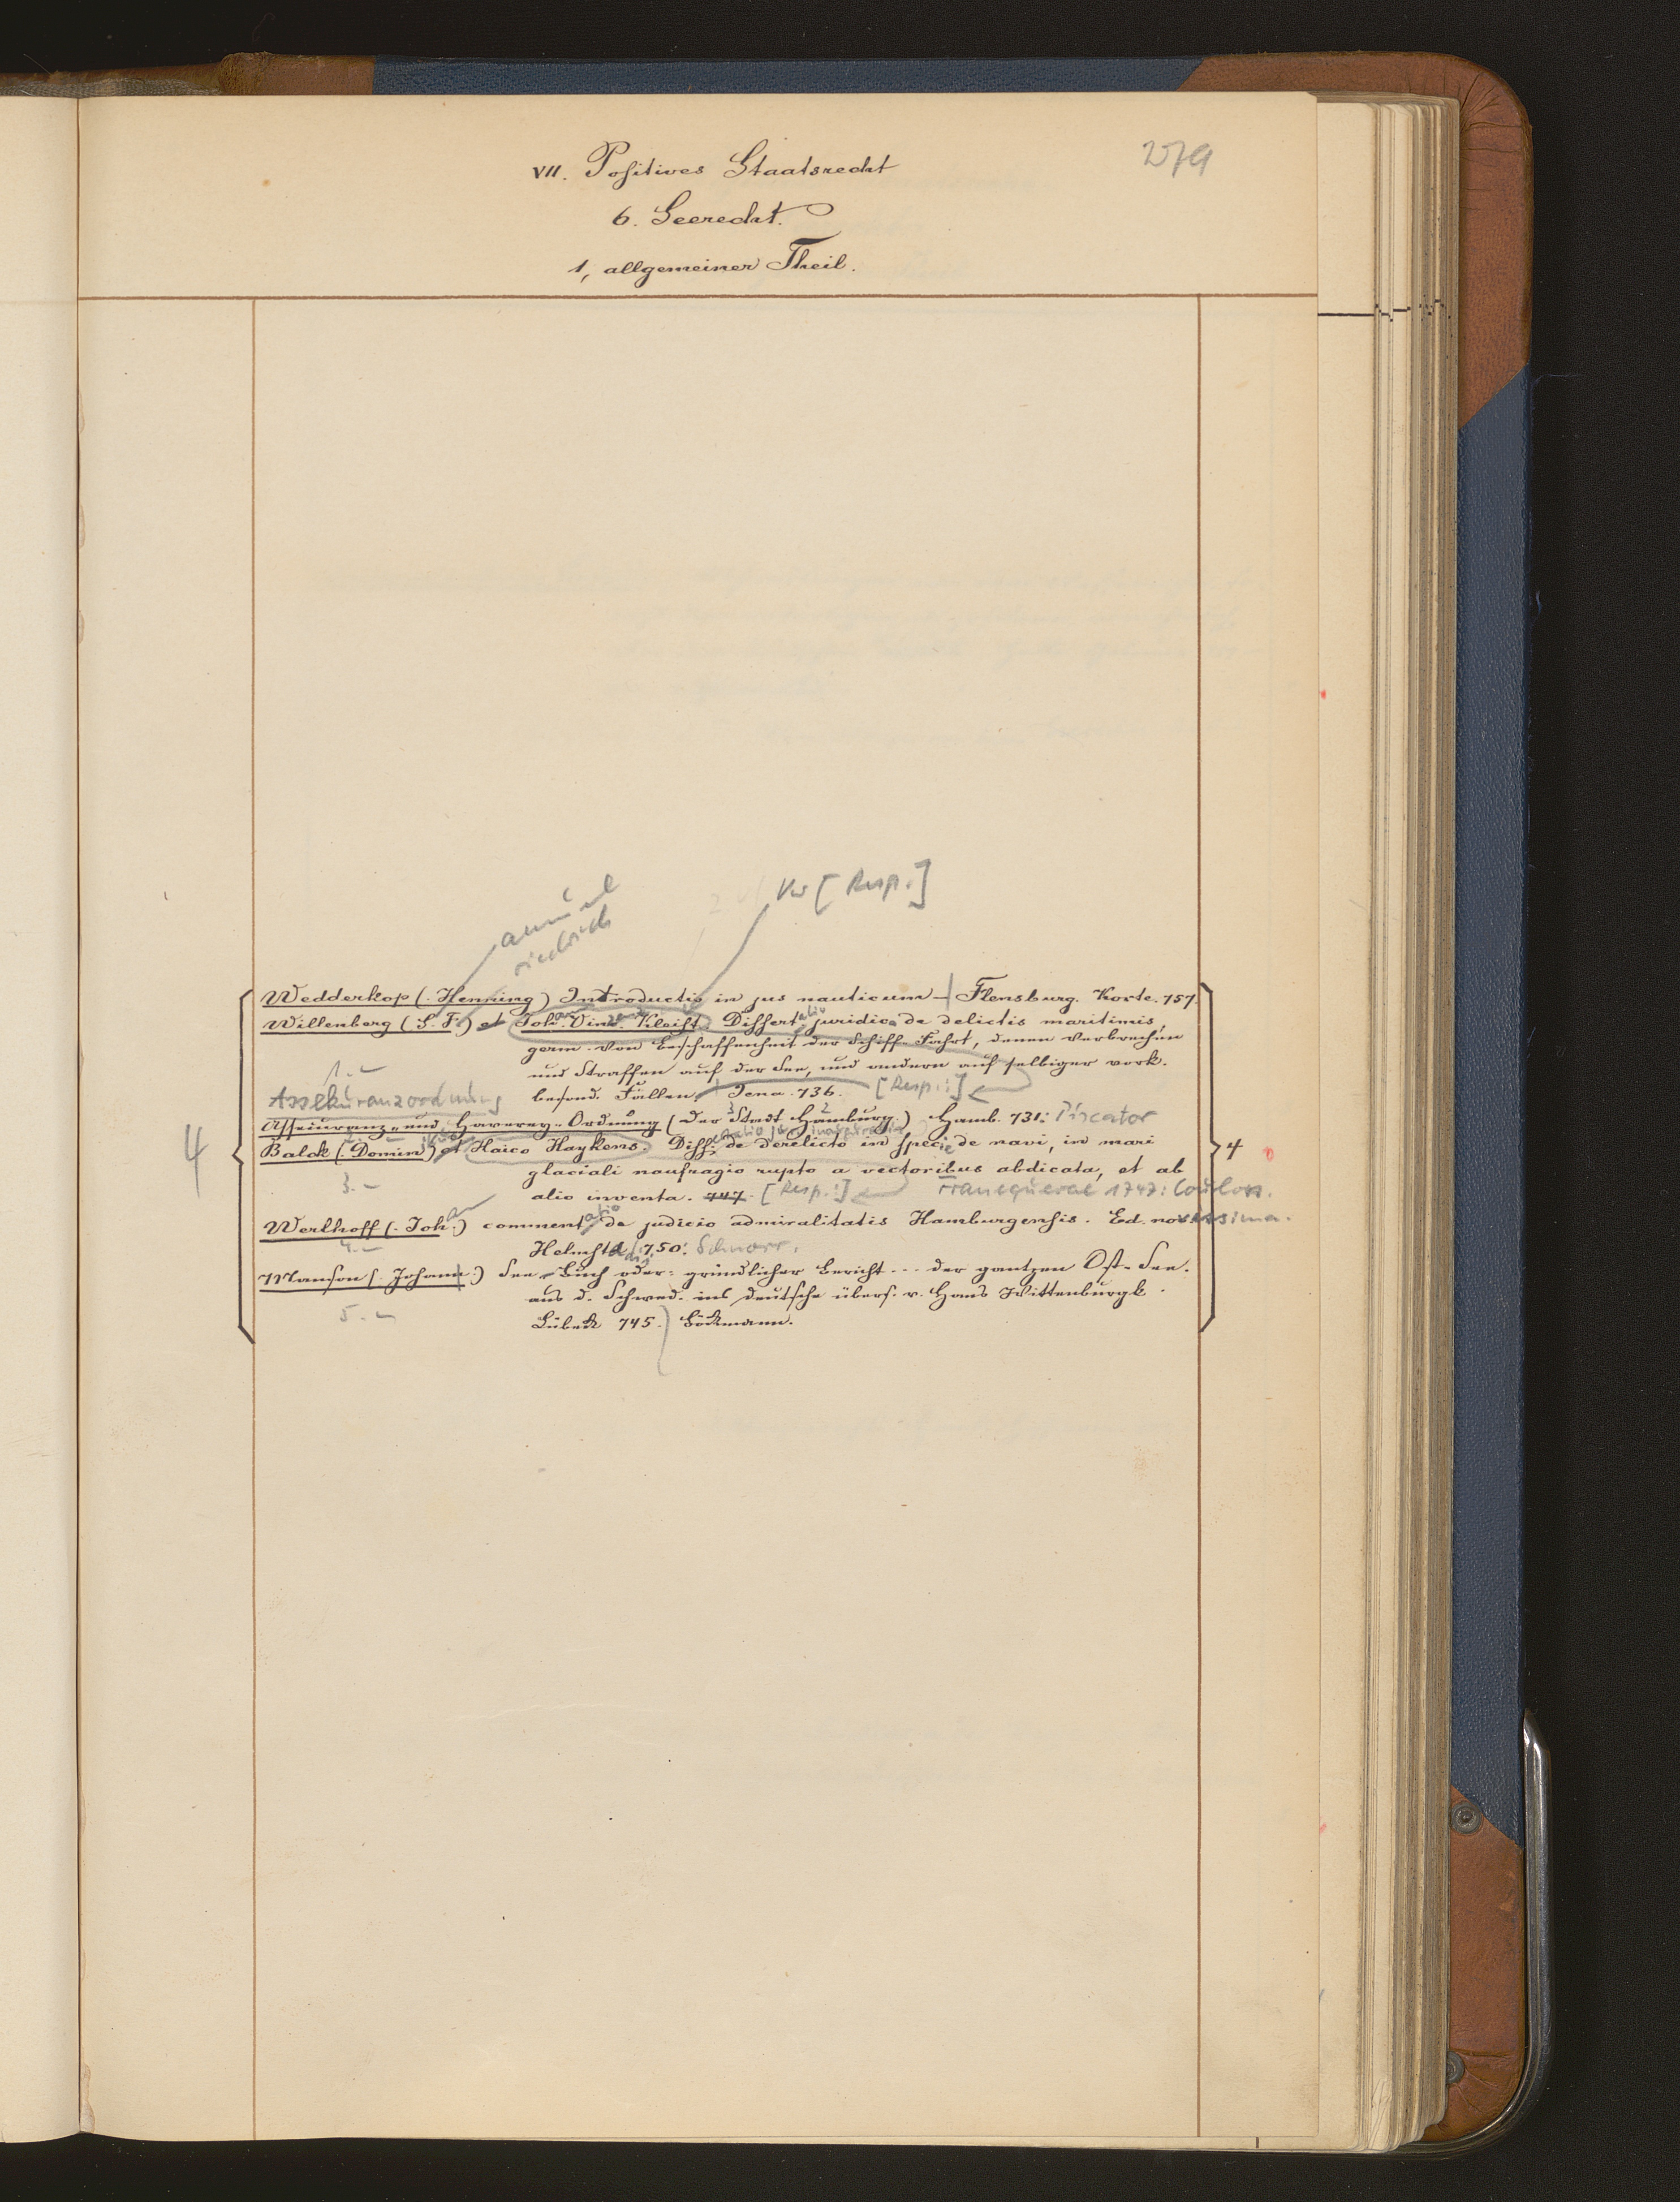 279
VII. Positives Staatsrecht
6. Seerecht.
1, allgemeiner Theil.
[Resp.]
amuel
riedrich
Wedderkop (. Henning) Introductio in jus nauticum – Flensburg. Korte. 757.
Willenberg (S. F.) et Joh. Vinc. Kleist. Dissertatio juridica de delictis maritimis,
germ. Von Beschaffenheit der Schiff-Fahrt, denen Verbrechen
und Straffen auf der See, und andern auf selbiger vork.
1.–
besond. Fällen Jena. 736. [Resp.:]
Assekuranzordnung
Assecuranz- und Haverey-Ordnung (der Stadt Hamburg.) Hamb. 731: Piscator
Balck (. Domin) et Haico Haykens. Diss. de derelicto in specie de navi, in mari
glaciali naufragio rupto a vectoribus abdicata, et ab
3.–
alio inventa. 747. [Resp.:] Franequerae 1747: Coulon.
Werlhoff (. Joh.) commentatio de judicio admiralitatis Hamburgensis. Ed. novissima.
4.–
Helmstadii 750: Schnorr.
Manson (. Johann.) See-Buch oder: gründlicher Bericht ... der gantzen Ost-See.
aus d. Schwed. ins deutsche übers. v. Hans Wittenburgk.
5.–
Lübeck 745. Böckmann.
4
4